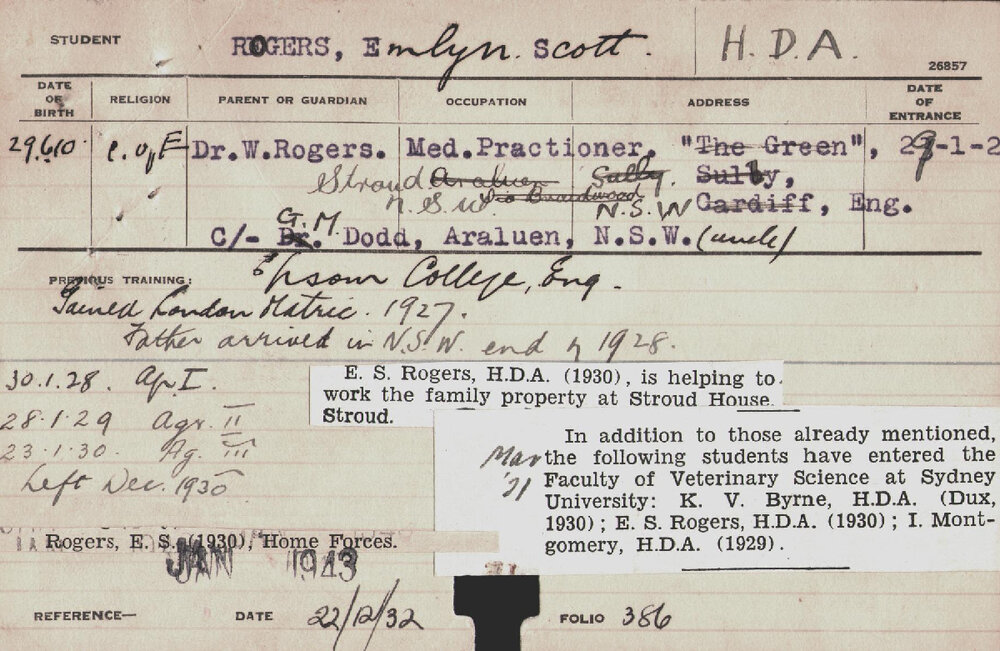 STUDENT ROGERS, Emlyn. Scott. H.D.A.
26857
DATE OF BIRTH RELIGION PARENT OR GUARDIAN OCCUPATION ADDRESS DATE OF ENTRANCE
29.6.10. C. of E Dr.W.Rogers. Med.Practioner. "The Green", 29-1-2
Stroud Araluen Sully. Sully,
N.S.W. via Braidwood N.S.W Cardiff, Eng.
G.M.
C/- Dr. Dodd, Araluen, N.S.W. (uncle)
PREVIOUS TRAINING: Epsom College, Eng.
Gained London Matric. 1927.
Father arrived in N.S.W. end of 1928.
30.1.28. Ag. I.
28.1.29 Agr. II
23.1.30. Ag. III
Left Dec. 1930
E. S. Rogers, H.D.A. (1930), is helping to
work the family property at Stroud House.
Stroud.
Mar '31
In addition to those already mentioned,
the following students have entered the
Faculty of Veterinary Science at Sydney
University: K. V. Byrne, H.D.A. (Dux,
1930); E. S. Rogers, H.D.A. (1930); I. Mont-
gomery, H.D.A. (1929).
Rogers, E. S. (1930), Home Forces.
JAN 1943
REFERENCE— DATE 22/12/32 FOLIO 386